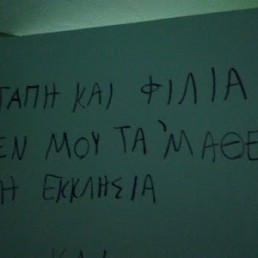 ΓΑΠΗ ΚΑΙ ΦΙΛΙΑ
ΕΝ ΜΟΥ ΤΑ 'ΜΑΘΕ
Η ΕΚΚΛΗΣΙΑ